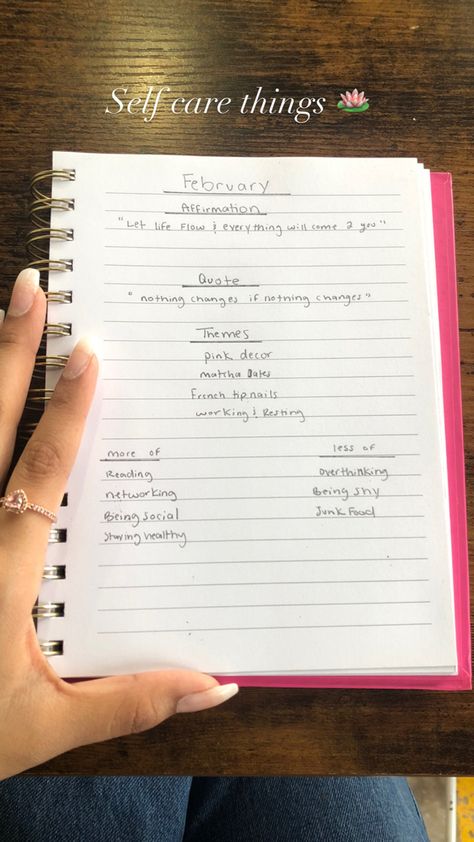 Self care things 🪷
February
Affirmation
"Let life flow & everything will come 2 you"
Quote
"nothing changes if nothing changes"
Themes
pink decor
matcha dates
French tip nails
working & Resting
more of
less of
Reading
overthinking
networking
Being shy
Being social
Junk Food
Staying healthy